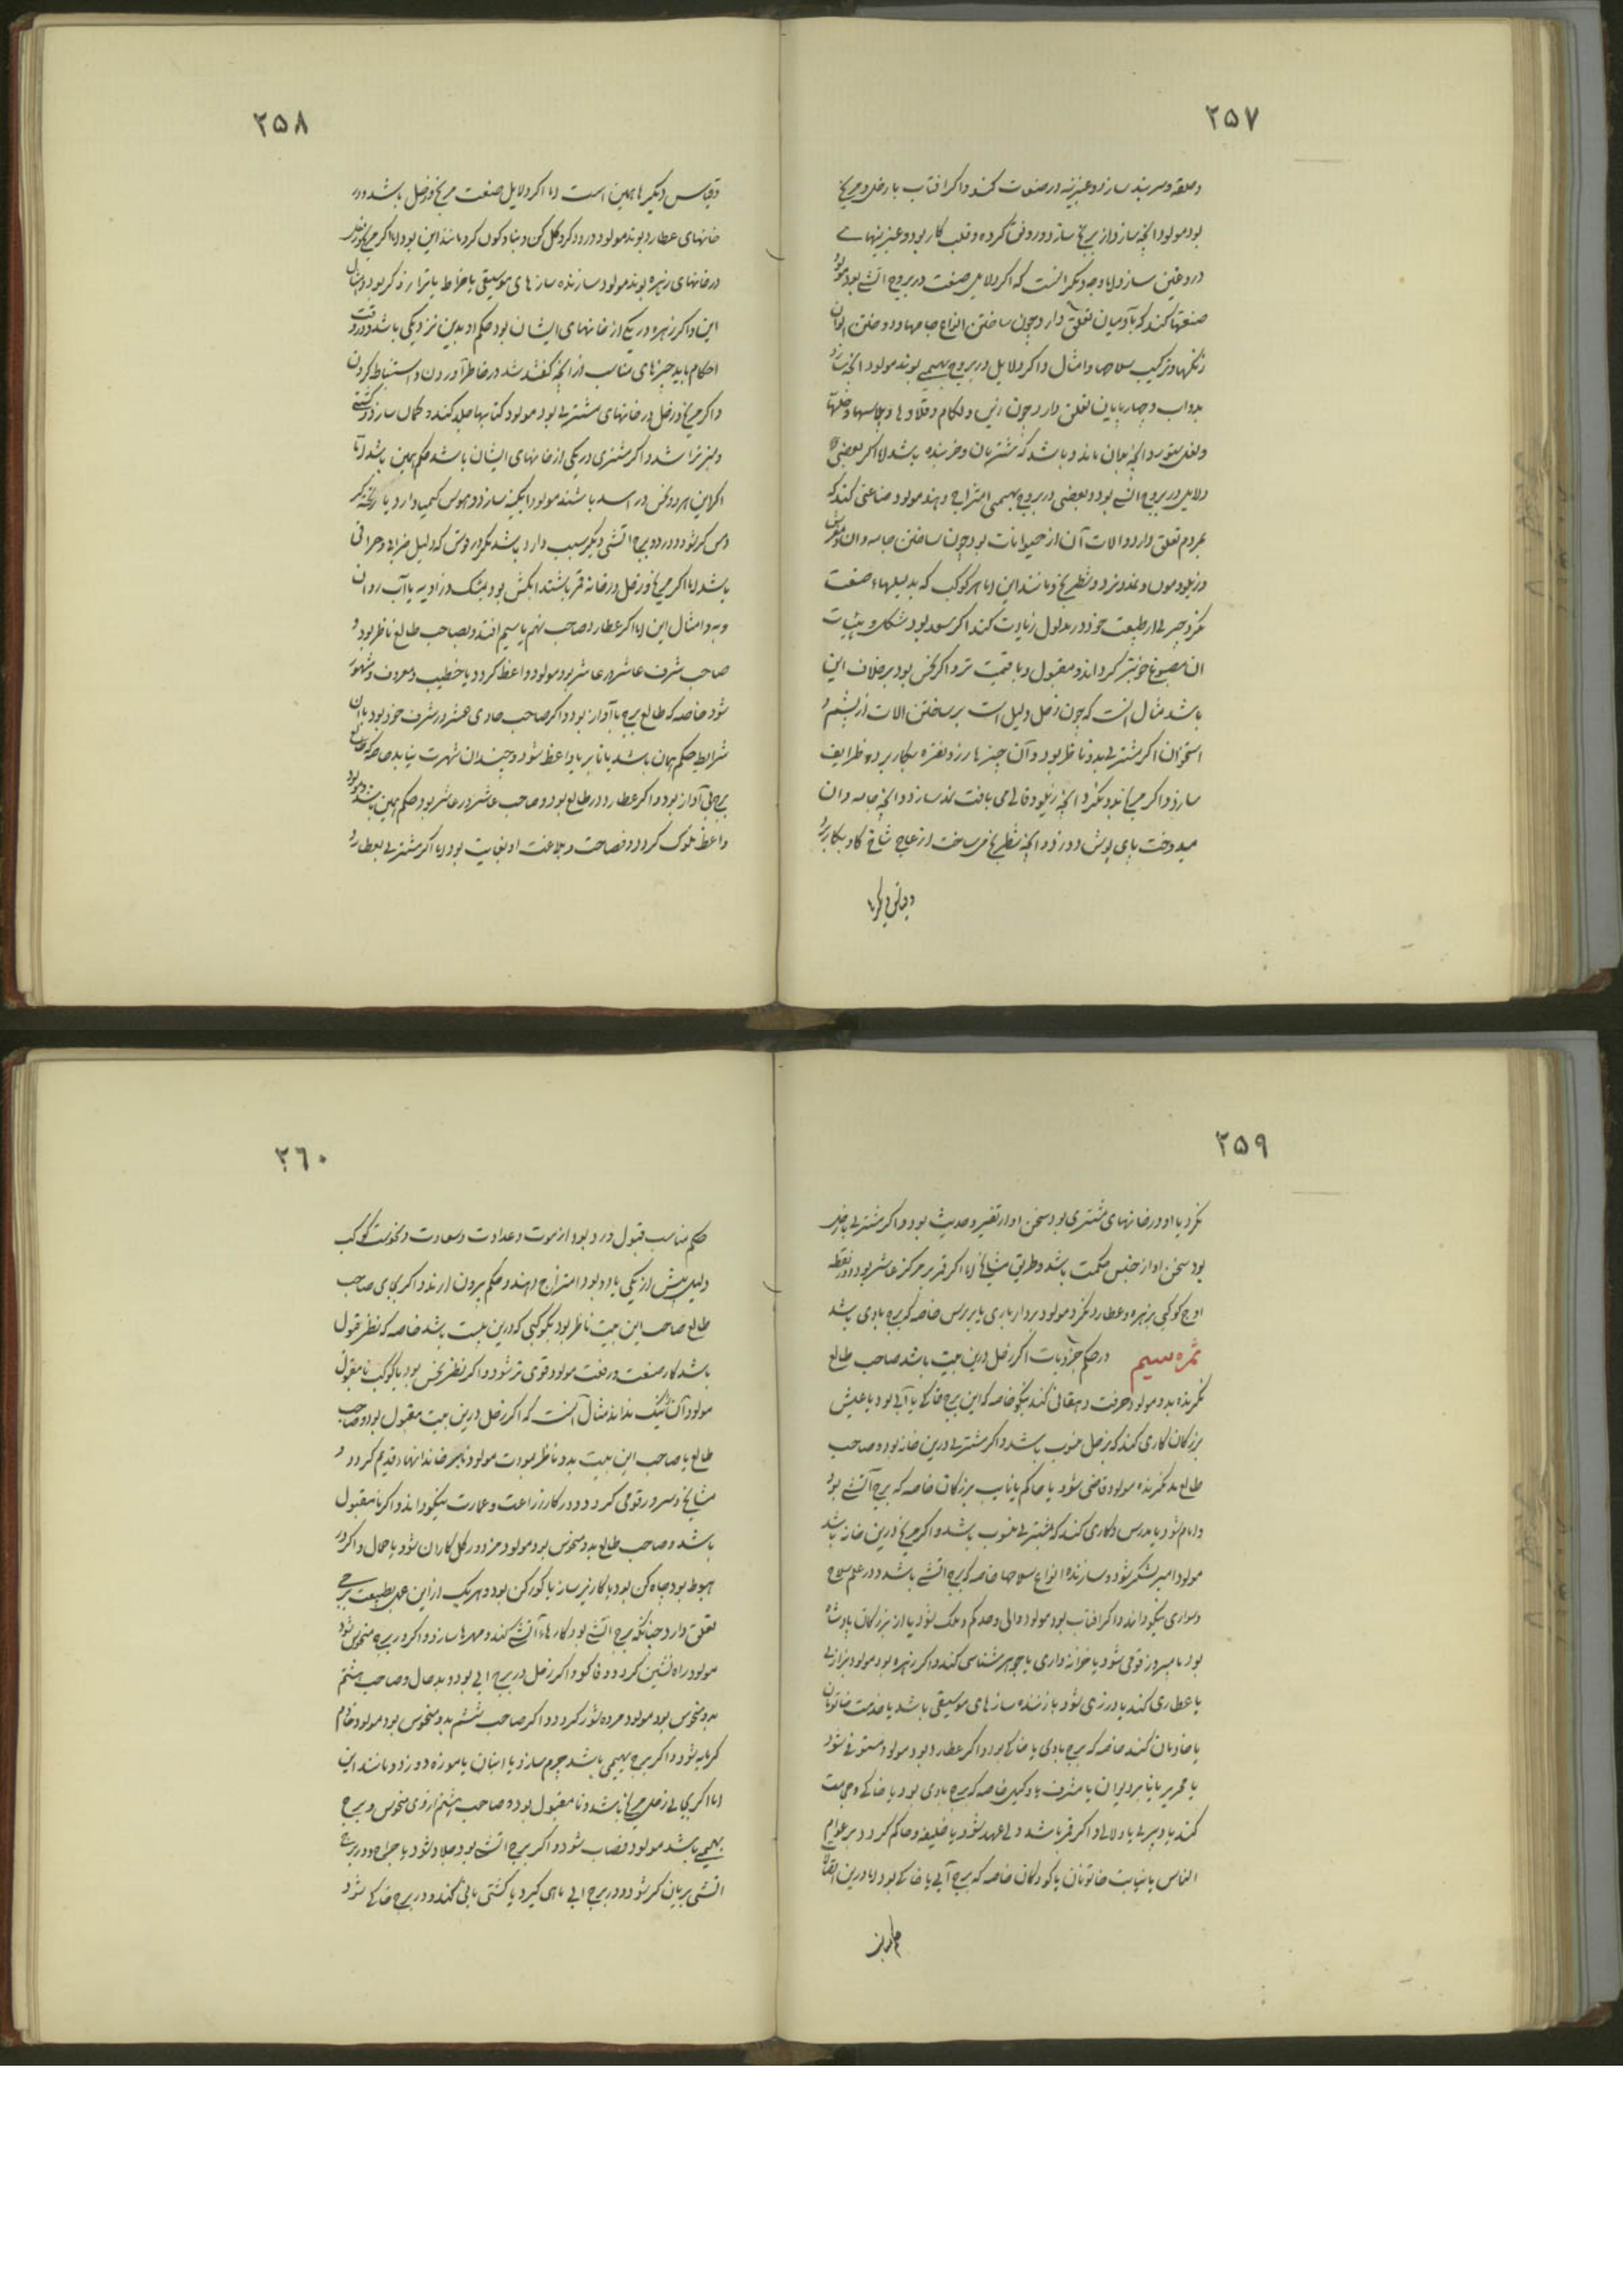 ۲۵۷
وحلقه وسربند سازد و عنبرینه در صنعت کند واکر افتاب با زحل و مریخ
بود مولود انچه سازد از برنج سازد و روفق کرده و قلب کار بود و عنبرینهاے
دروغین سازد اما وجه دیکر انست که اکر دلایل صنعت در بروج انسے بود مولود
صنعتها کند که بآدمیان تعلق دارد چون ساختن انواع جامها و دوختن الوان
رنکها و ترکیب سلاحها و امثال واکر دلایل در بروج بهیمے بوند مولود انچه سازد
بدواب و چهارپایان تعلق دارد چون زین و لکام و قلاوها و پلاسها و جلها
ونعل ستور و انچه بدان ماند و باشد که شتربان و خربنده باشد اما اکر بعضی
دلایل در بروج انسے بود و بعضی در بروج بهیمی امتزاج دهند مولود صناعتی کند که
بمردم تعلق دارد و الات آن از حیوانات بود چون ساختن جامه وان و مفرش
و زیلو و نرد و شطرنج و مانند این اما هر کوکب که بدلیلهاء صنعت
نکرد چیزی از طبیعت خود در مدلول زیادت کند اکر سعد بود شکل و هیئات
ان مصنوع خوبتر کرداند و مقبول و با قیمت تر و اکر نحس بود برخلاف این
باشد مثال انست که چون زحل دلیل است بر ساختن الات از پشم و
استخوان اکر مشتری بدو ناظر بود و آن چیزها زر و نقره بکار برد و ظرایف
سازد و اکر مریخ بدو نکرد انچه زیلو و قالی می بافت نمد سازد و انچه جامه وان
میدوخت پای پوش دوزد و انچه شطرنج می ساخت از عاج شاخ کاو بکار برد
و قیاس دیکرها
۲۵۸
و قیاس دیکرها همین است اما اکر دلایل صنعت مریخ و زحل باشد و در
خانهای عطارد بوند مولود درودکر و کل کن و بنا و کرد مانند این بود اما اکر مریخ و زحل
در خانهای زهره بوند مولود سازنده سازهای موسیقی یا خراط یا بود و امثال
این و اکر زهره در یکی از خانهای ایشان بود حکم او بدین نزدیکی باشد و در وقت
احکام باید چیزهای مناسب از انچه کفته شد در خاطر آوردن و استنباط کردن
و اکر مریخ و زحل در خانهای مشتری بود مولود کتابها جلد کند و کمان سازد و کشتے
و تیر تراشد و اکر مشتری در یکی از خانهای ایشان باشد حکم همین باشد اما
اکر این هر دو نحس در اسد باشند مولود ابکینه سازد و هوس کیمیا دارد یا ریخته کر
و مس کر شود و در دو برج اتشی دیکر سبب دارد باشد مکر در قوس که دلیل ضرابی و حرافی
باشد اما اکر مریخ و زحل در خانه قمر باشند ابکش بود بمشک و زاویه یا آب روان
و به و امثال این اما اکر عطارد و صاحب نهم یا سیم افتد و بصاحب طالع ناظر بود و
صاحب شرف عاشر در عاشر بود مولود واعظ کردد یا خطیب و معروف و مشهور
شود خاصه که طالع برج با آواز بود و اکر صاحب حادی عشر در شرف خود بود با ان
شرایط حکم همان باشد یا نایب یا واعظ شود و چندان شهرت نیابد خاصه که طالع
برج بی آواز بود و اکر عطارد در طالع بود و صاحب عاشر در عاشر بود حکم همین باشد و مولود
واعظ ملوک کردد و فصاحت و بلاغت او بغایت بود اما اکر مشتری بعطارد
۲۵۹
نکرد یا او در خانهای مشتری بود سخن او از تفسیر و حدیث بود و اکر مشتری با زحل
بود سخن او از جنس حکمت باشد و طریق مشایخ اما اکر قمر بر مرکز عاشر بود و در نقطه
اوج کوکبی بزهره و عطارد نکرد مولود بردار بازی یا بر رسن خاصه که برج بادی باشد
ثمره سیم در حکم جزویات اکر زحل درین بیت باشد صاحب طالع
نکرنده بدو مولود حرفت دهقانی کند نیکو خاصه که این برج خاکے یا آبی بود یا عیش
بزرکان کاری کند که بزحل منسوب باشد و اکر مشتری درین خانه بود و صاحب
طالع بدو نکرنده مولود قاضی شود یا حاکم یا نایب بزرکان خاصه که برج آتشے بود
و امام شود یا مدرس و کاری کند که بمشتری منسوب باشد و اکر مریخ درین خانه باشد
مولود امیر لشکر شود و سازنده انواع سلاحها خاصه که برج اتشے باشد و در علم سلاح
و سواری نیکو داند و اکر افتاب بود مولود والی و حاکم و ملک شود یا از بزرکان پادشاه
بود یا میر و قومی شود یا خزانه داری یا جوهر شناسی کند و اکر زهره بود مولود بزازی
یا عطاری کند یا درزی شود یا زننده سازهای موسیقی باشد یا خدمت خاتونان
یا خادمان کند خاصه که برج بادی یا خاکے بود و اکر عطارد بود مولود مستوفی شود
یا محرر یا نایب دیوان یا مشرف یا وکیل خاصه که برج بادی بود یا خاکے و
کند یا دبیری یا دلالی و اکر قمر باشد ولی عهد شود یا خلیفه و حاکم کردد بر عوام
الناس یا نیابت خاتونان یا کودکان خاصه که برج آبی یا خاکے بود اما درین
حکم مناسب
۲۶۰
حکم مناسب قبول و رد بود از مودت و عداوت و سعادت و نحوست کوکب
دلیل بیش از یکی یا دو بود امتزاج دهند و حکم بیرون ارند و اکر بجای صاحب
طالع صاحب این بیت ناظر بود بکوکبی که درین بیت باشد خاصه که نظر قبول
باشد کار صنعت و رفعت مولود قوی تر شود و اکر نظر نحس بود یا کوکب نا مقبول
مولود آن نیک نداند مثال آنست که اکر زحل درین بیت مقبول بود و صاحب
طالع یا صاحب این بیت بدو ناظر بمودت مولود خاندانهاء قدیم کردد و
مشایخ و سرور قومی کردد و در کار زراعت و عمارت نیکو داند و اکر نا مقبول
باشد و صاحب طالع بدو منحوس بود مولود مزدور کل کاران شود یا حمال و اکر در
هبوط بود چاه کن بود یا کاریز ساز یا کورکن بود و هر یک از این عمل بطبیعت برجے
تعلق دارد چنانکه برج اتشے بود کارهاء آتشے کند و مهرها سازد و اکر در برج منحوس شود
مولود راه نشین کردد و فالکو و اکر زحل در برج ابی بود و بد حال و صاحب هشتم
بدو منحوس بود مولود مرده شور کردد و اکر صاحب ششم بدو منحوس بود مولود خادم
کرمابه شود و اکر برج بهیمی باشد چرم سازد یا انبان یا موزه دوزد و مانند این
اما اکر بجای زحل مریخ باشد و نا مقبول بود و صاحب هشتم ازوی منحوس و برج
بهیمے باشد مولود قصاب شود و اکر برج انسے بود جلاد شود یا جراح و در برج
اتشی بریان کر شود و در برج ابی ماهی کیرد یا کشتی بانی کند و در برج خاکے شود